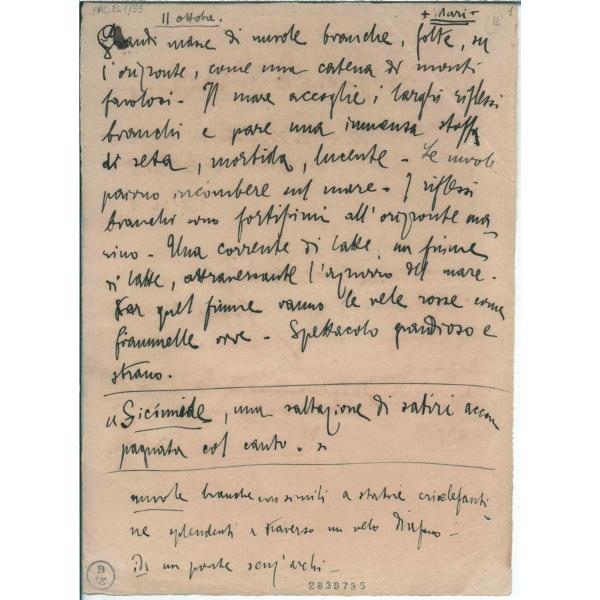 ARC.24 1/35
11 ottobre.
+ Mari +
Grandi masse di nuvole bianche, folte, su
l'orizzonte, come una catena di monti
favolosi - Il mare accoglie i larghi riflessi
bianchi e pare una immensa stoffa
di seta, morbida, lucente - Le nuvole
paiono incombere sul mare - I riflessi
bianchi sono fortissimi all'orizzonte ma
rino - Una corrente di latte, un fiume
di latte, attraversante l'azzurro del mare -
Per quel fiume vanno le vele rosse come
fiammelle vive - Spettacolo grandioso e
strano.
"Sicinnide, una saltazione di satiri accom
pagnata col canto - "
nuvole bianche così simili a statue criselefanti
ne splendenti a traverso un velo diafano -
un ponte senz'archi -
2838735